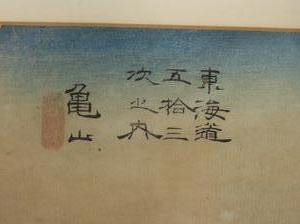 東海道
五拾三
次之内
亀山